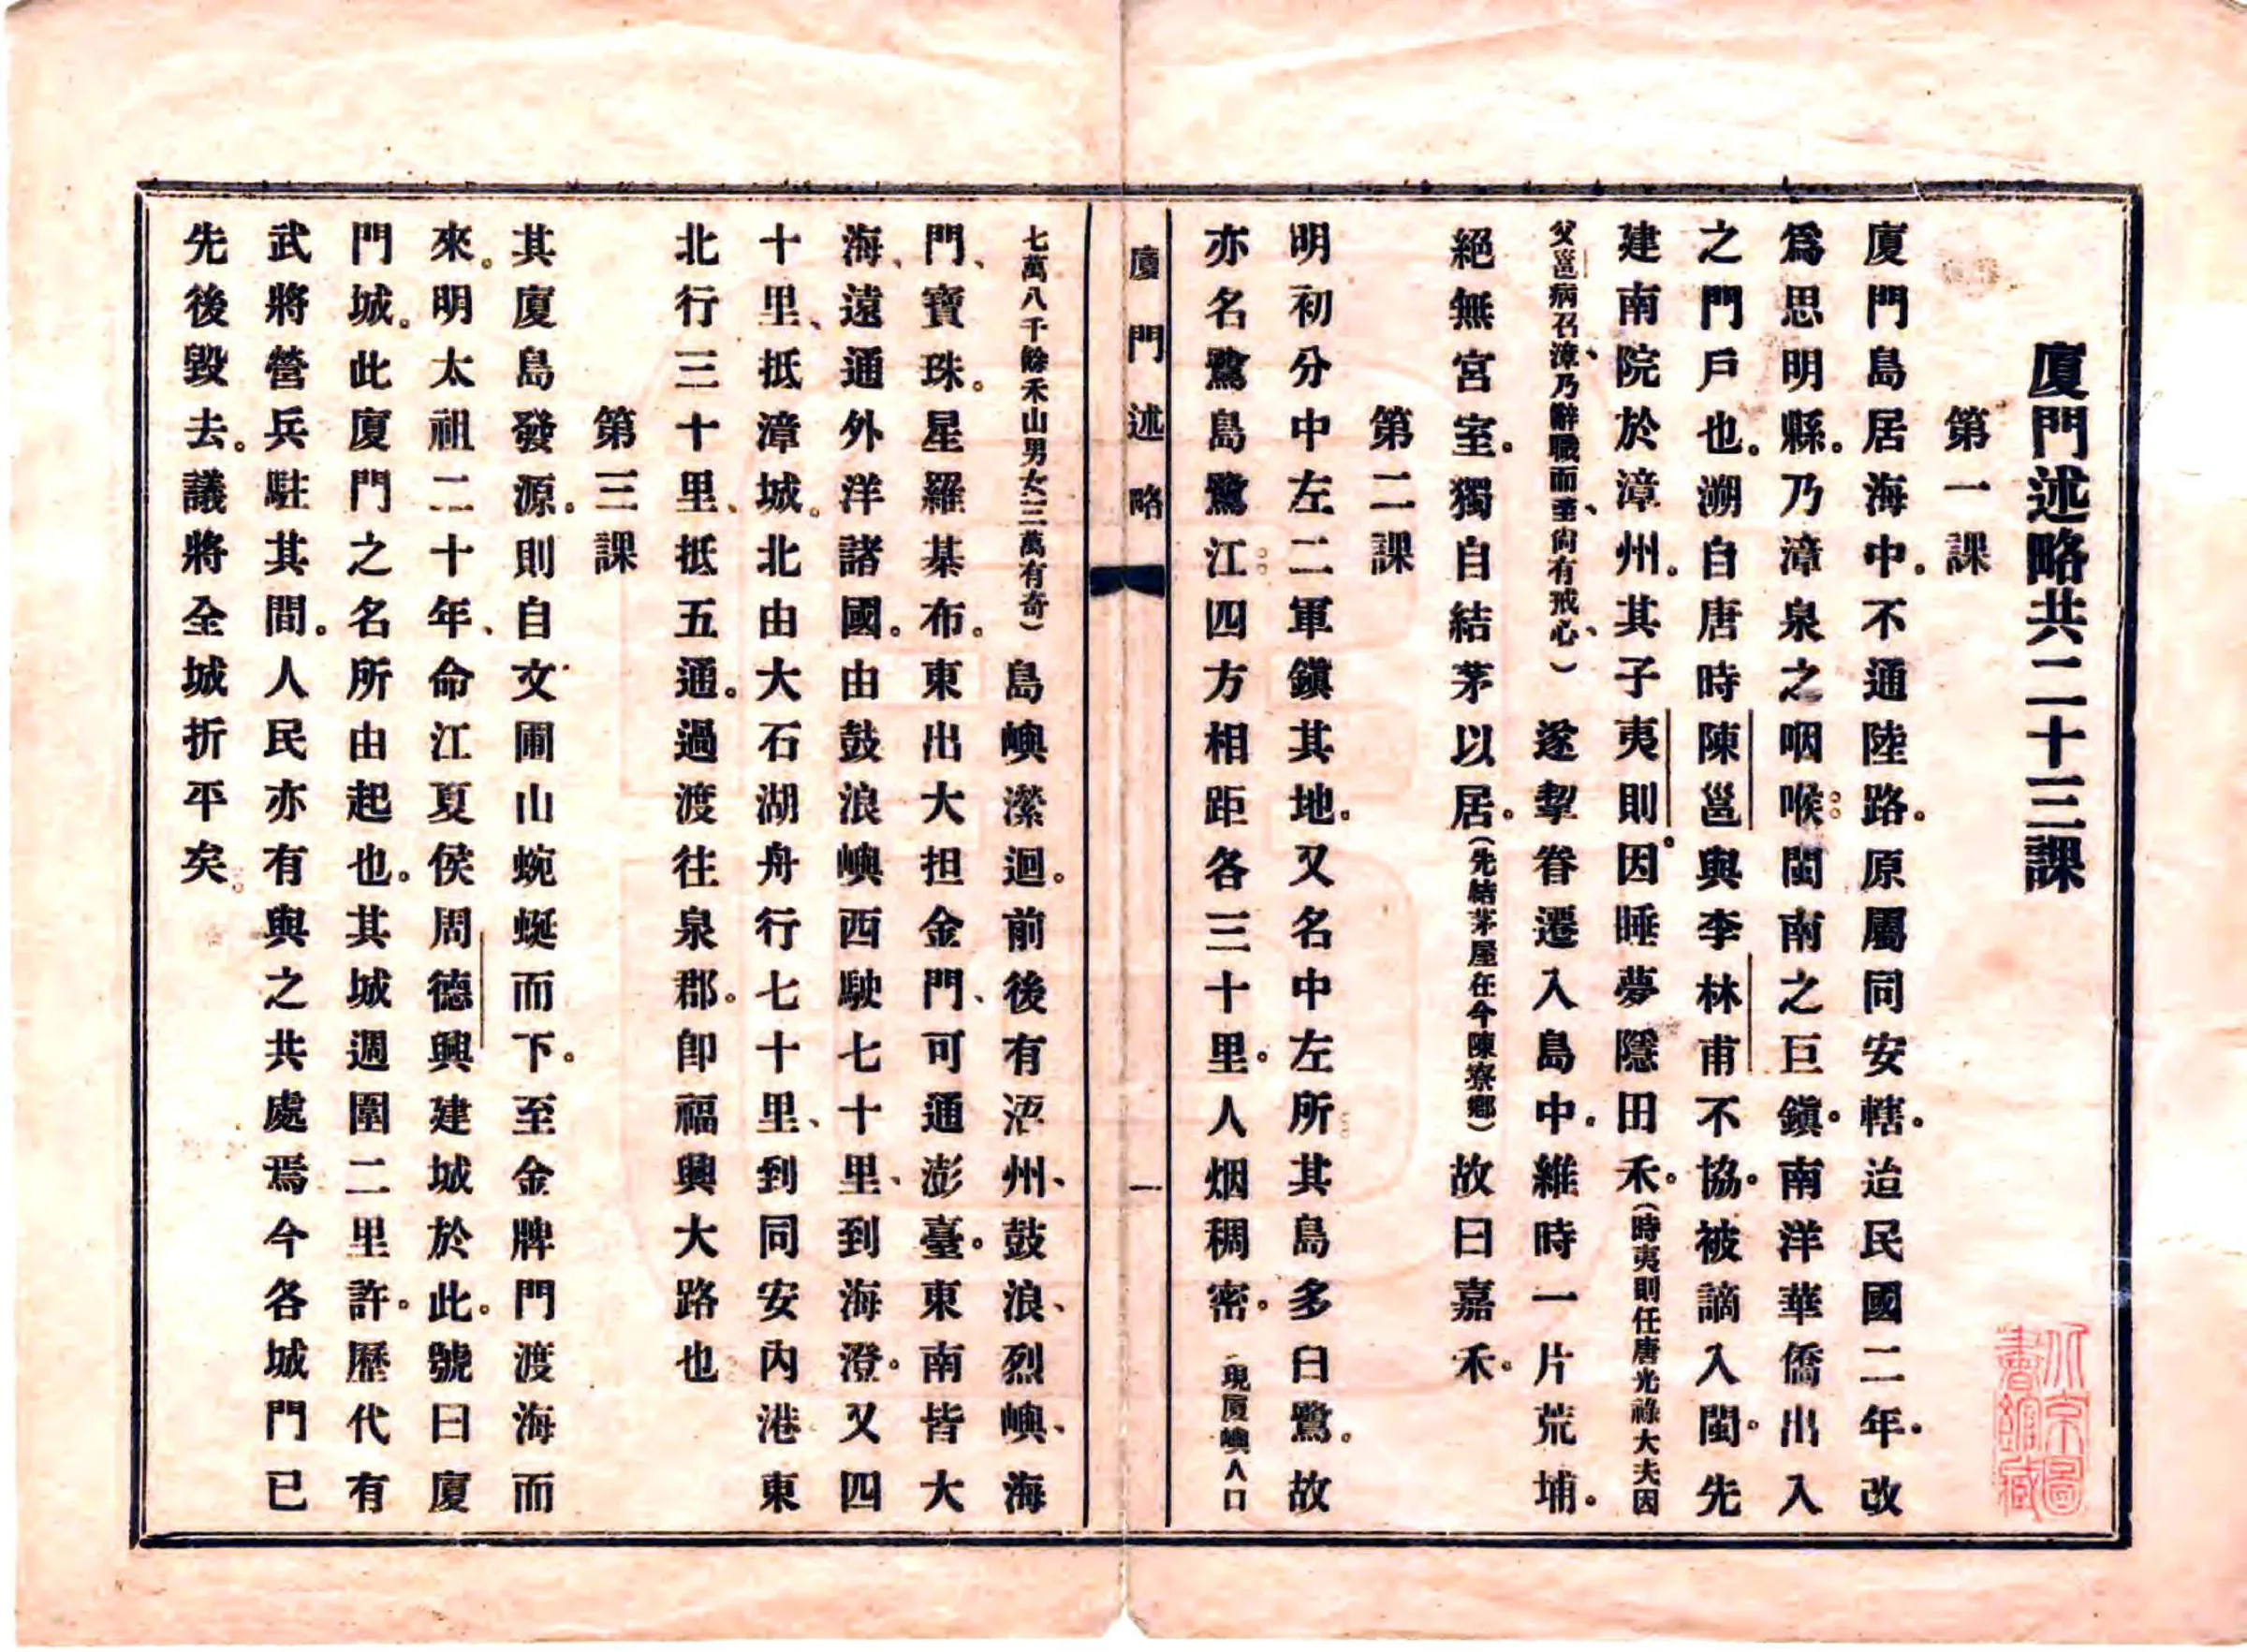 廈門述略共二十三課
第一課
廈門島居海中。不通陸路。原屬同安轄。迨民國二年。改
爲思明縣。乃漳泉之咽喉。閩南之巨鎭。南洋華僑出入
之門戶也。溯自唐時陳邕與李林甫不協。被謫入閩。先
建南院於漳州。其子夷則。因睡夢隱田禾。(時夷則任唐光祿大夫因
父邕病召、漳乃辭職而至、尙有戒心、) 遂挈眷遷入島中。維時一片荒埔。
絕無宮室。獨自結茅以居。(先結茅屋在今陳寮鄉)故曰嘉禾。
第二課
明初分中左二軍鎭其地。又名中左所。其島多白鷺。故
亦名鷺島鷺江。四方相距各三十里。人烟稠密。(現厦嶼人口
七萬八千餘禾山男女三萬有奇)島嶼瀠迴。前後有浯州、鼓浪、烈嶼、海
門、寶珠。星羅棊布。東出大担金門、可通澎臺。東南皆大
海、遠通外洋諸國。由鼓浪嶼西駛七十里、到海澄。又四
十里、抵漳城。北由大石湖舟行七十里、到同安內港東
北行三十里、抵五通。過渡往泉郡。卽福興大路也
第三課
其廈島發源。則自文圃山蜿蜒而下。至金牌門渡海而
來。明太祖二十年、命江夏侯周德興建城於此。號曰廈
門城。此廈門之名所由起也。其城週圍二里許。歷代有
武將營兵駐其間。人民亦有與之共處焉今各城門已
先後毀去。議將全城折平矣。
廈門述略
一
北京圖
書館藏